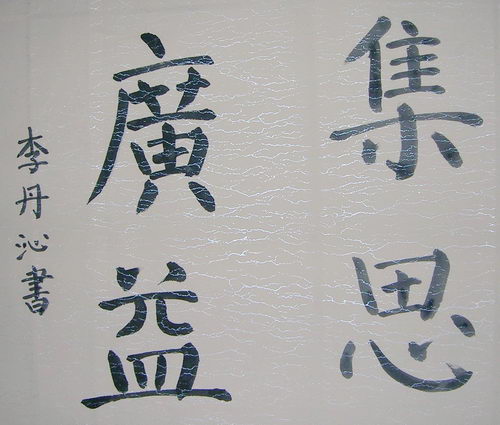 集思
廣益
李丹沁書